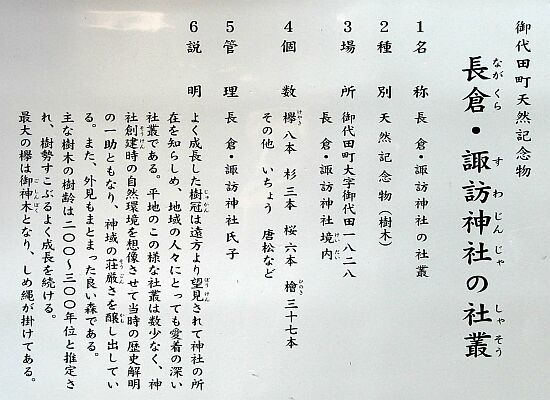 御代田町天然記念物
長倉・諏訪神社の社叢
ながくら すわじんじゃ しゃそう
1 名称 長倉・諏訪神社の社叢
2 種別 天然記念物(樹木)
3 場所 御代田町大字御代田一八二八
長倉・諏訪神社境内
けいだい
4 個数 欅八本 杉三本 桜六本 檜三十七本
けやき ひのき
その他 いちょう 唐松など
5 管理 長倉・諏訪神社氏子
6 説明 よく成長した樹冠は遠方より望見されて神社の所
じゅかん ぼうけん
在を知らしめ、地域の人々にとっても愛着の深い
社叢である。平地のこの様な社叢は数少なく、神
社創建時の自然環境を想像させて当時の歴史解明
そうけん
の一助ともなり、神域の荘厳さを醸し出してい
そうごん かも
る。また、外見もまとまった良い森である。
主な樹木の樹齢は二〇〇〜三〇〇年位と推定さ
れ、樹勢すこぶるよく成長を続ける。
最大の欅は御神木となり、しめ縄が掛けてある。
ごしんぼく